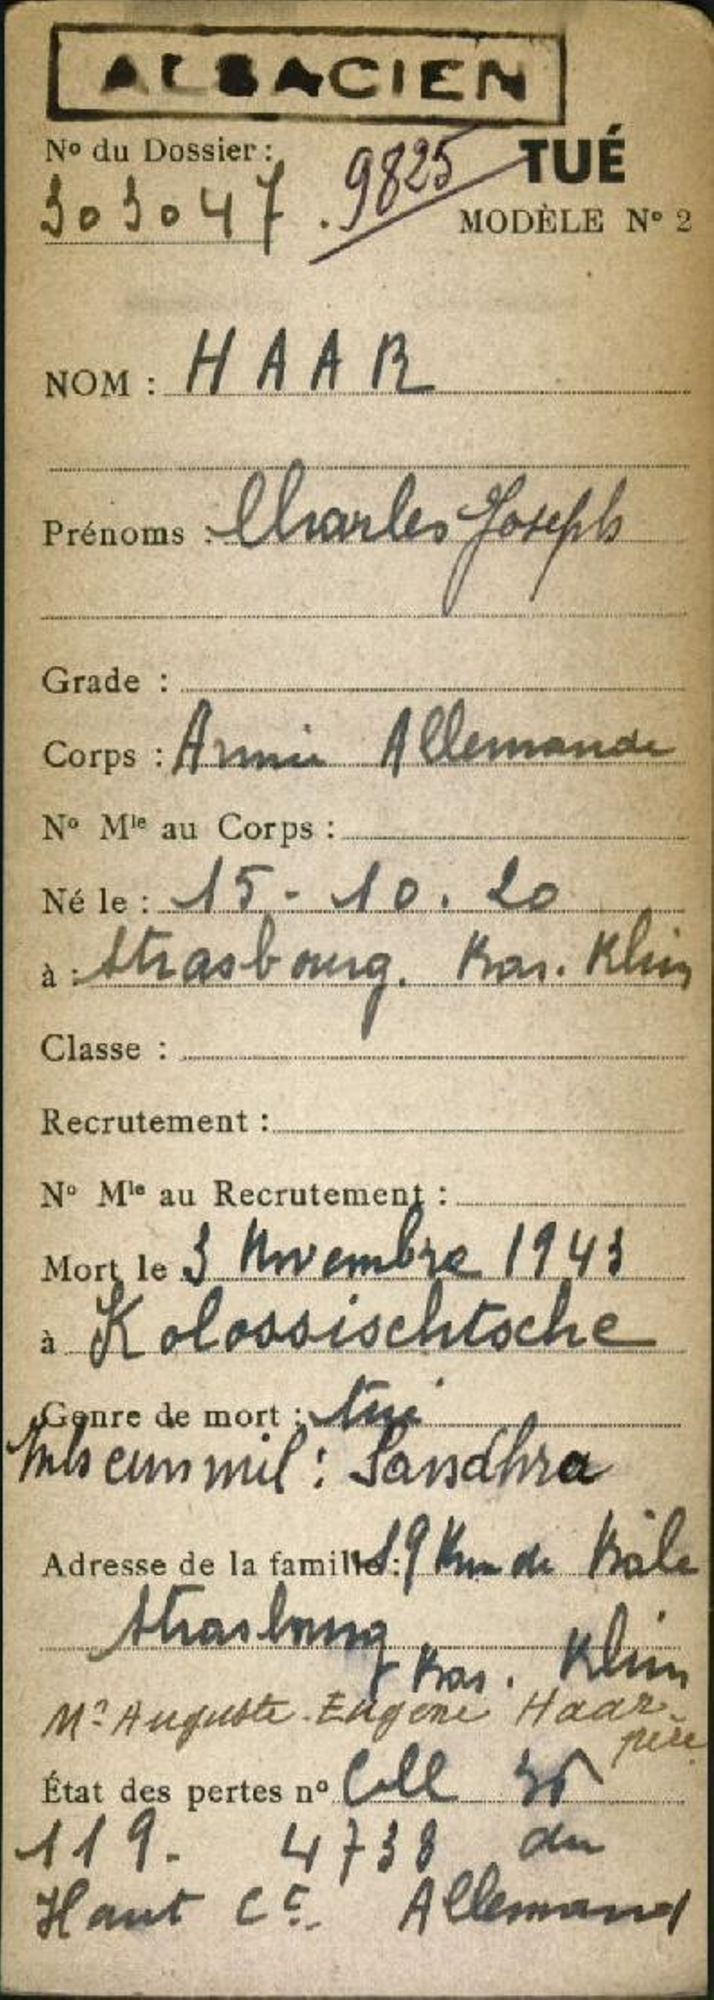 ALSACIEN
Nº du Dossier :
303047. 9825 TUÉ
MODÈLE Nº 2
NOM : HAAR
Prénoms : Charles Joseph
Grade :
Corps : Armée Allemande
Nº Mle au Corps :
Né le : 15-10.20
à : Strasbourg. Bas. Rhin
Classe :
Recrutement :
Nº Mle au Recrutement :
Mort le 3 Novembre 1943
à Kolossischtsche
Genre de mort : tué
mil : Sandhra
Adresse de la famille : 19 Rue de Bâle
Strasbourg Bas. Rhin
Mr Auguste-Eugène Haar
père
État des pertes nº Coll 35
119. 4738 du
Haut Ct. Allemand